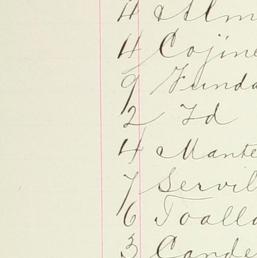 4 Alm
4 Cojine
9 Funda
2 Id
4 Mante
7 Servil
6 Toalla
3 Cande